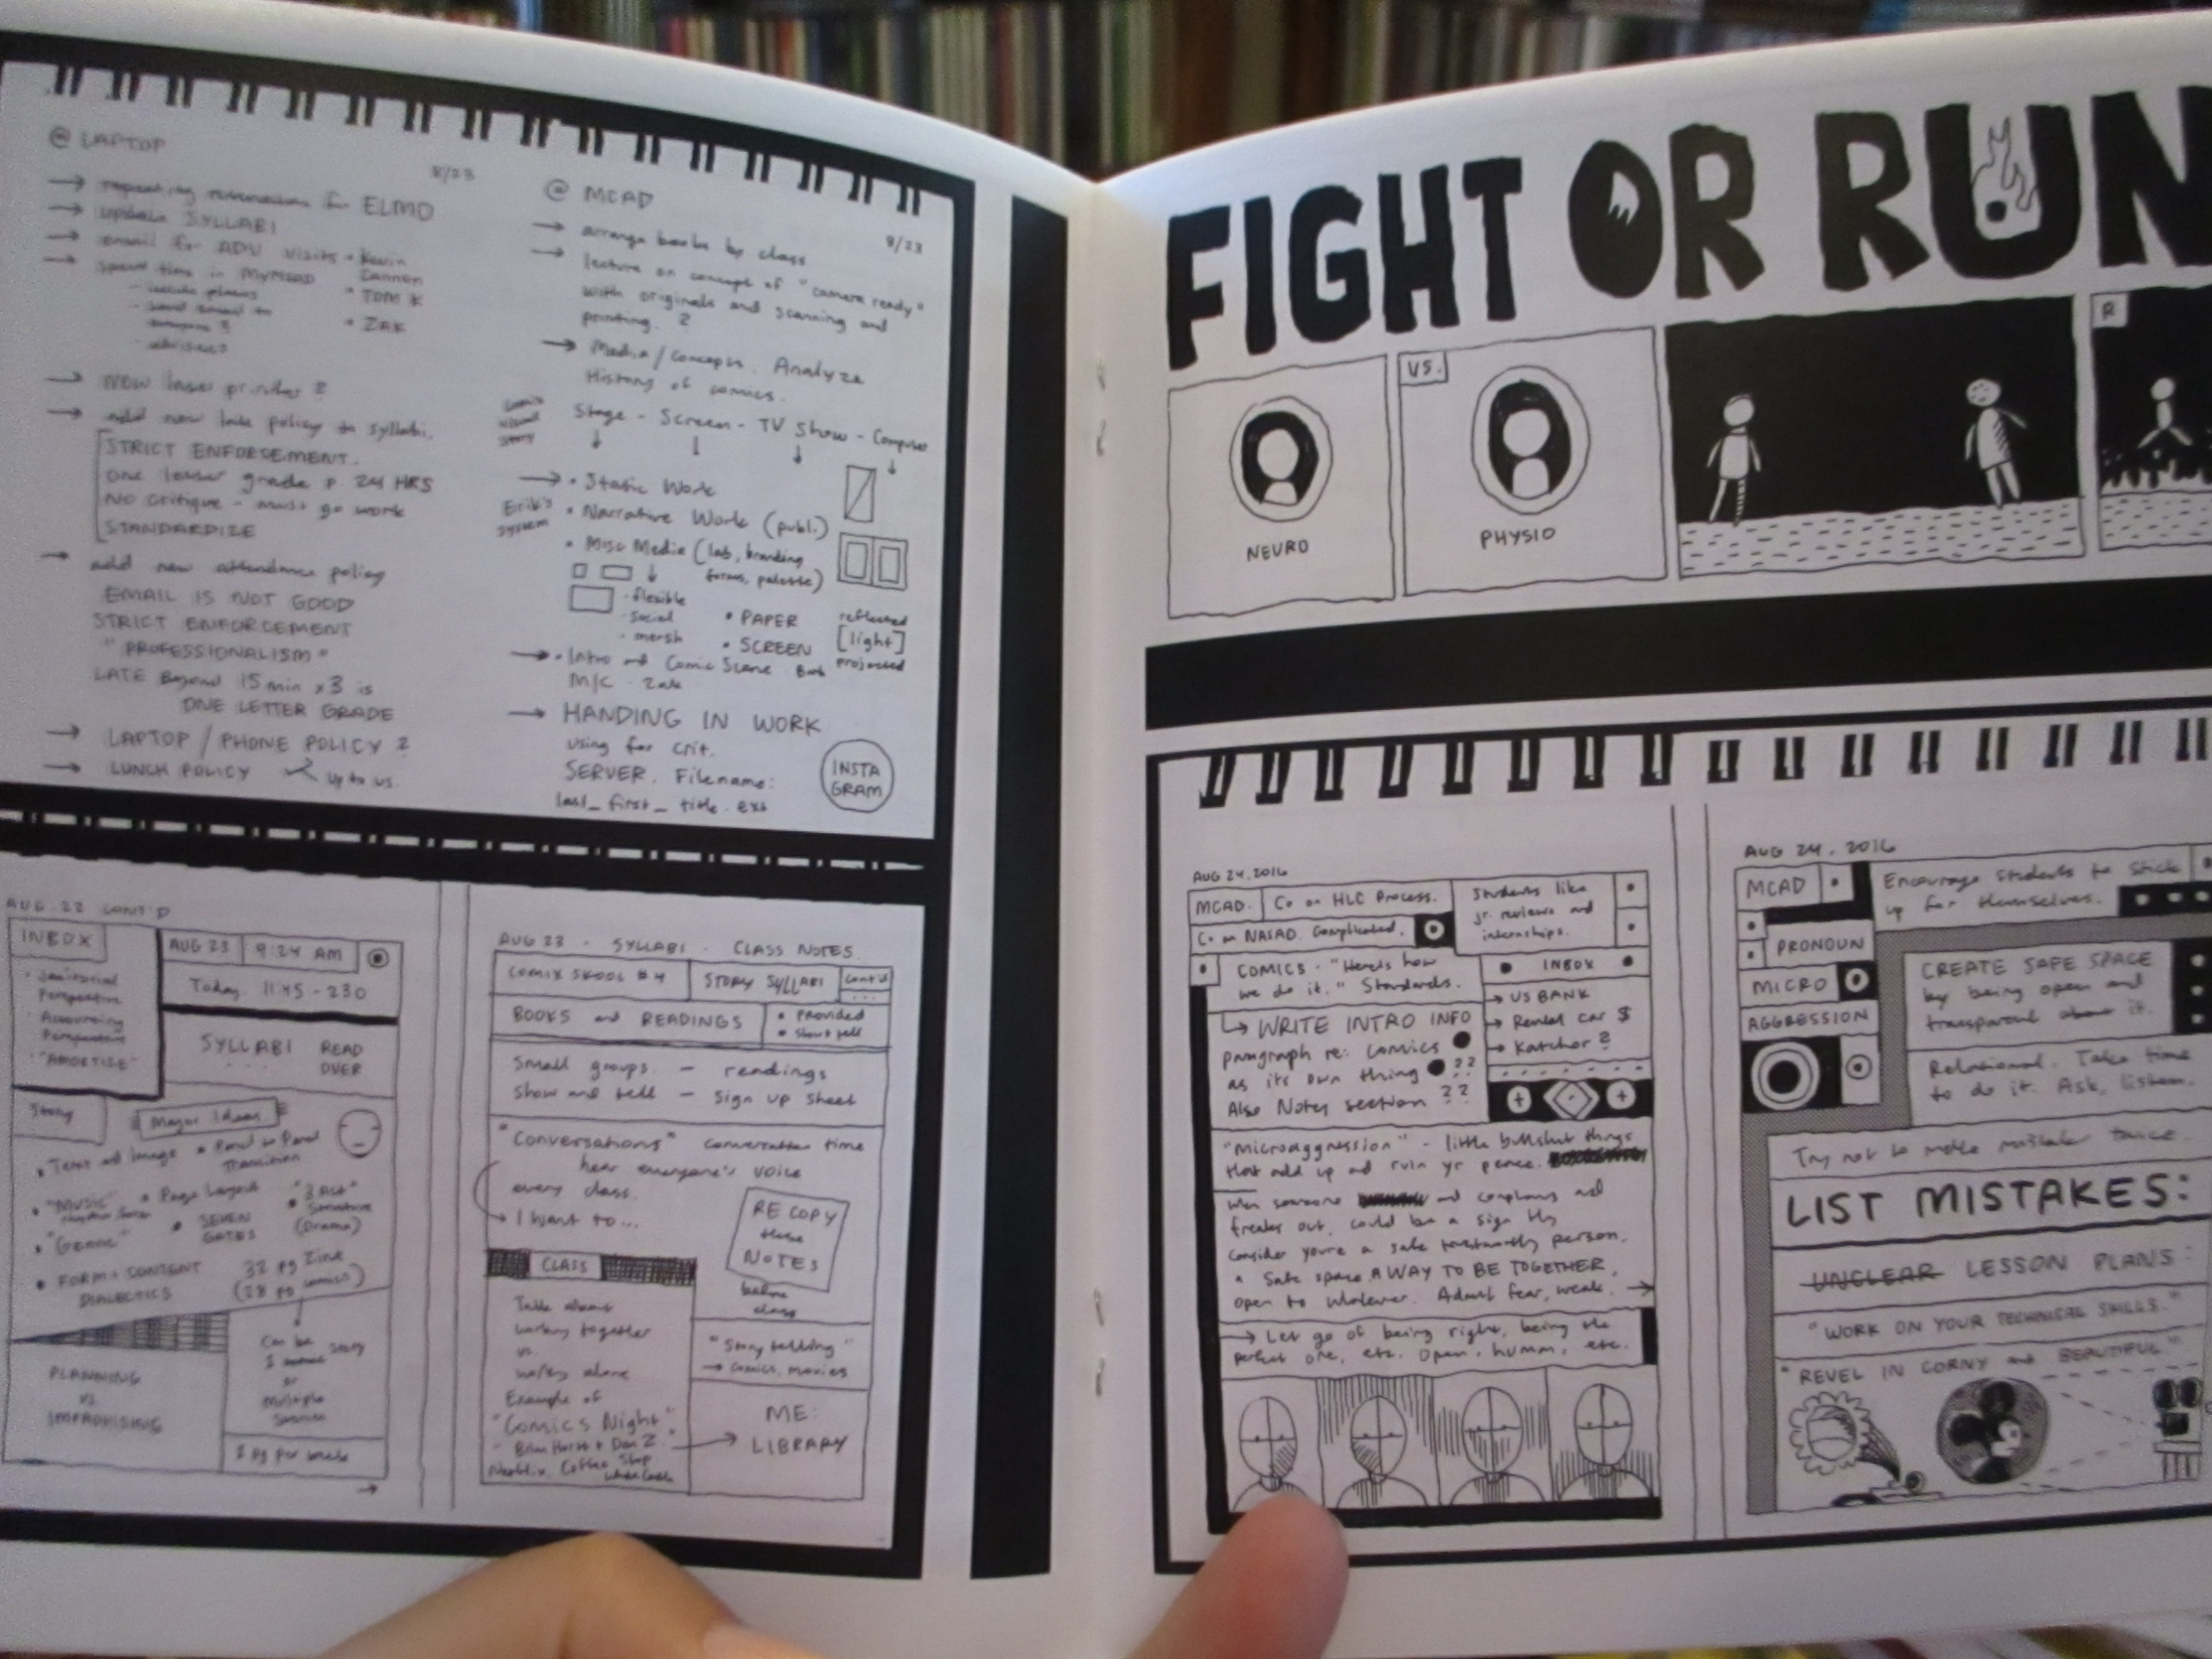 @ LAPTOP
8/23
→ repeating reservation for ELMO
→ update SYLLABI
→ email for ADV visits • Kevin
Damon
→ spend time in MyMCAD • TOM K
- send email to
• ZAK
- advisees
→ new laser printer ?
→ add new late policy to syllabi.
STRICT ENFORSEMENT.
one letter grade p 24 HRS
NO critique - must go work
STANDARDIZE
→ add new attendance policy
EMAIL IS NOT GOOD
STRICT ENFORCEMENT
"PROFESSIONALISM"
LATE Beyond 15 min x 3 is
ONE LETTER GRADE
→ LAPTOP / PHONE POLICY ?
→ LUNCH POLICY up to us.
@ MCAD
8/23
→ arrange books by class
→ lecture on concept of "camera ready"
with originals and scanning and
printing. ?
→ Media / Concepts. Analyze
History of comics.
Comic
Visual
Story
Stage - Screen - TV Show - Computer
→ • Static Work
Erik's
system
• Narrative Work (publ.)
• Misc Media (lab, branding
forms, palette)
- flexible
- social
- mersh
• PAPER
• SCREEN
reflected
[light]
projected
→ • Intro and Comic Scene. Book
M/C - Zak
→ HANDING IN WORK
using for crit.
SERVER. Filename:
last_first_title.ext
INSTA
GRAM
AUG. 22 CONT'D
INBOX
• Janitorial
Perspective
• Accounting
Perspective
• "AMORTIZE"
AUG 23 9:24 AM
Today 11:45 - 230
SYLLABI READ
OVER
Story
Major Ideas
• Text and Image • Panel to Panel
Transition
• "MUSIC" • Page Layout • "3 Act"
Structure
(Drama)
• "Genre" • SEVEN
GATES
• FORM + CONTENT
DIALECTICS
32 pg Zine
(28 pg comics)
PLANNING
vs.
IMPROVISING
Can be
1 story
or
multiple
stories
2 pg per week
AUG 23 - SYLLABI - CLASS NOTES
COMIX SKOOL #4 STORY SYLLABI Cont'd
BOOKS and READINGS • PROVIDED
• Show + tell
Small groups - readings
Show and tell - sign up sheet
"Conversations" conversation time
hear everyone's voice
every class.
I want to...
RE COPY
these
NOTES
before
class
CLASS
Talk about
working together
vs.
working alone
Example of
"Comics Night"
Coffee Shop
"Story telling"
→ comics, movies
ME:
LIBRARY
FIGHT OR RUN
NEURO
VS.
PHYSIO
R
AUG 24, 2016
MCAD. Co on HLC Process.
Co on NASAD. Complicated.
Students like
jr. reviews and
internships.
COMICS - "Here's how
we do it." Standards.
INBOX
→ US BANK
→ Rental car $
→ Katchor ?
↳ WRITE INTRO INFO
paragraph re: Comics
as its own thing ??
Also Notes section ??
"Microaggression" - little bullshit things
that add up and ruin yr peace.
When someone and complains and
freaks out, could be a sign they
consider you're a safe trustworthy person.
a safe space. A WAY TO BE TOGETHER,
open to whatever. Admit fear, weak. →
→ Let go of being right, being the
perfect one, etc. Open, human, etc.
AUG 24, 2016
MCAD
Encourage students to stick
up for themselves.
PRONOUN
MICRO
AGGRESSION
CREATE SAFE SPACE
by being open and
transparent about it.
Relational. Take time
to do it. Ask, listen.
Try not to make mistakes twice.
LIST MISTAKES:
UNCLEAR LESSON PLANS:
"WORK ON YOUR TECHNICAL SKILLS."
"REVEL IN CORNY and BEAUTIFUL."